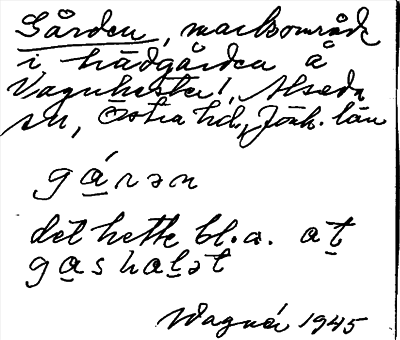 Gården, markområde
i trädgården å
Vagnhester!, Alseda
sn, Östra hd., Jönk. län
gárən
det hette bl.a. at
gashalət
Wagnér 1945